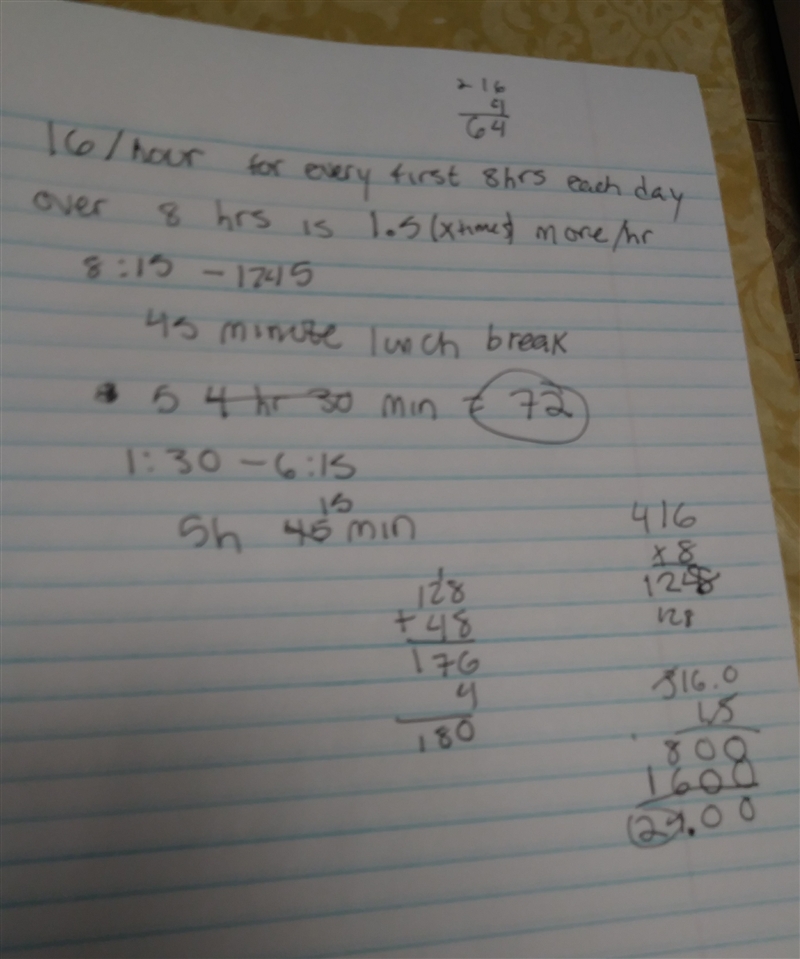 2 16
4
64
16/hour for every first 8hrs each day
over 8 hrs is 1.5 (x times) more/hr
8:15 - 1245
45 minute lunch break
5 4 hr 30 min = 72
1:30 - 6:15
15
5h 45 min
416
x 8
1248
128
1
128
+ 48
176
4
180
316.0
1.5
800
1600
24.00